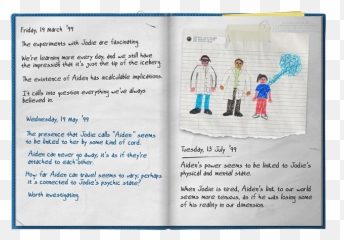 Friday, 19 march '99
The experiments with Jodie are fascinating.
We're learning more every day, and we still have
the impression that it's just the tip of the iceberg.
The existence of Aiden has incalculable implications.
It calls into question everything we've always
believed in.
Wednesday, 19 may '99
The presence that Jodie calls "Aiden" seems
to be linked to her by some kind of cord.
Aiden can never go away; it's as if they're
attached to each other.
How far Aiden can travel seems to vary; perhaps
it's connected to Jodie's psychic state?
Worth investigating.
Tuesday, 13 July '99
Aiden's power seems to be linked to Jodie's
physical and mental state.
When Jodie is tired, Aiden's link to our world
seems more tenuous, as if he was losing some
of his reality in our dimension.